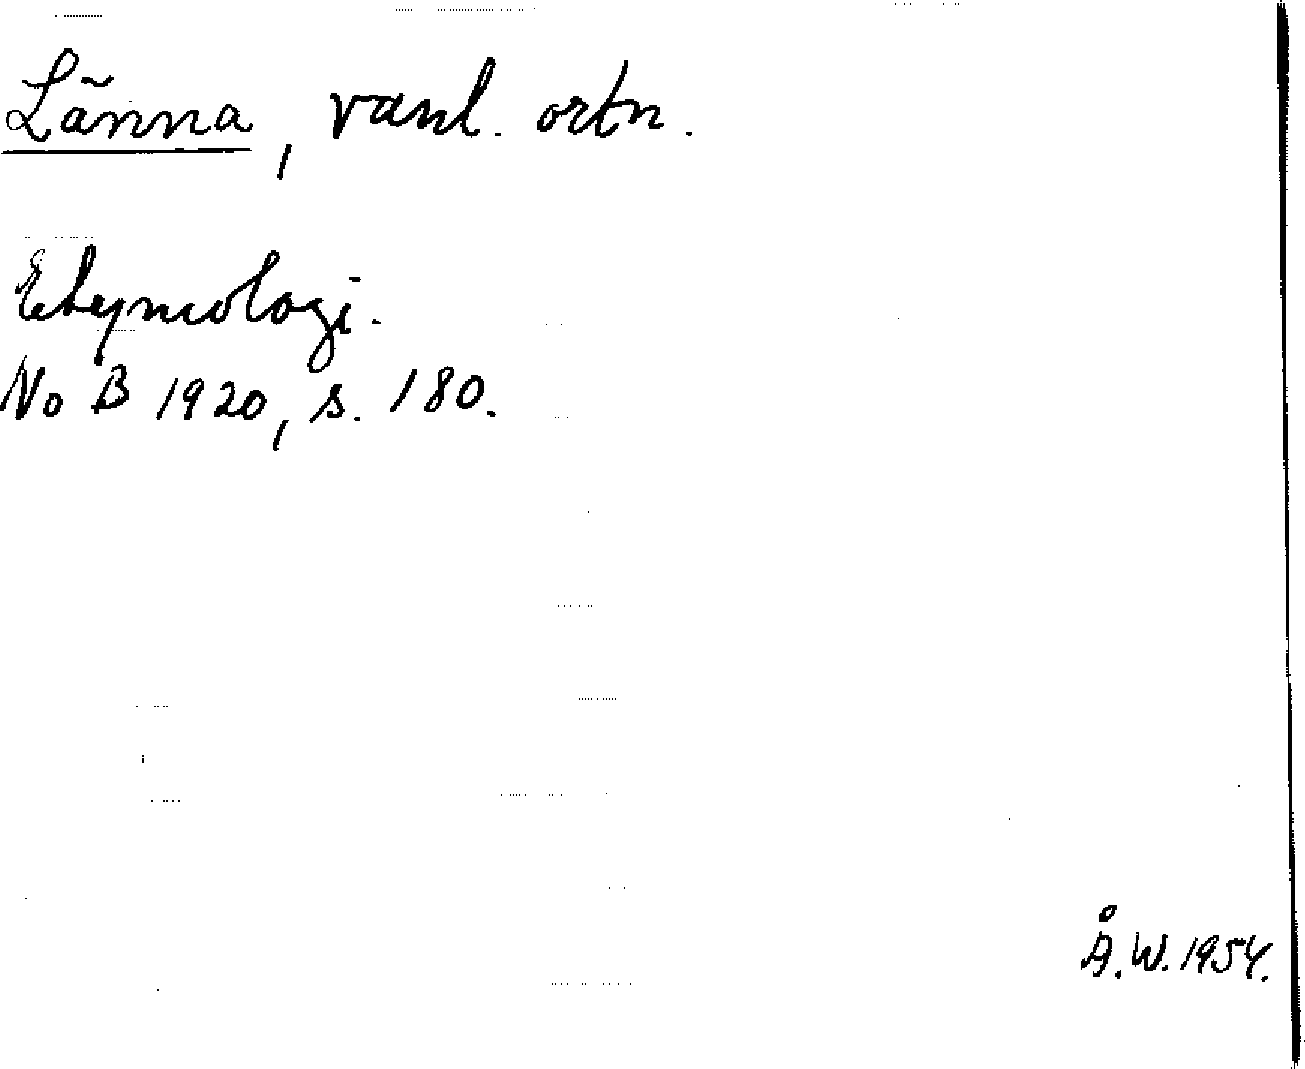 Länna, vanl. ortn.
Etymologi.
No B 1920, s. 180.
Å.W. 1954.